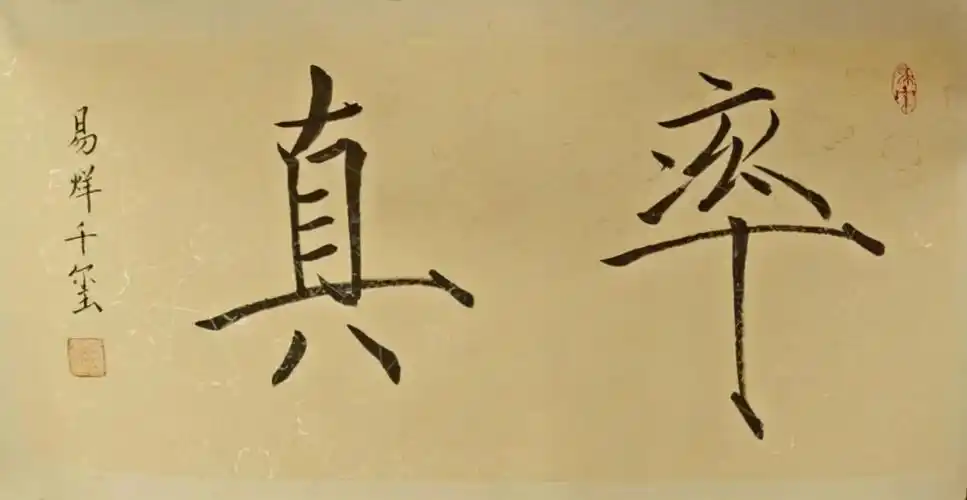 率真
易烊千玺